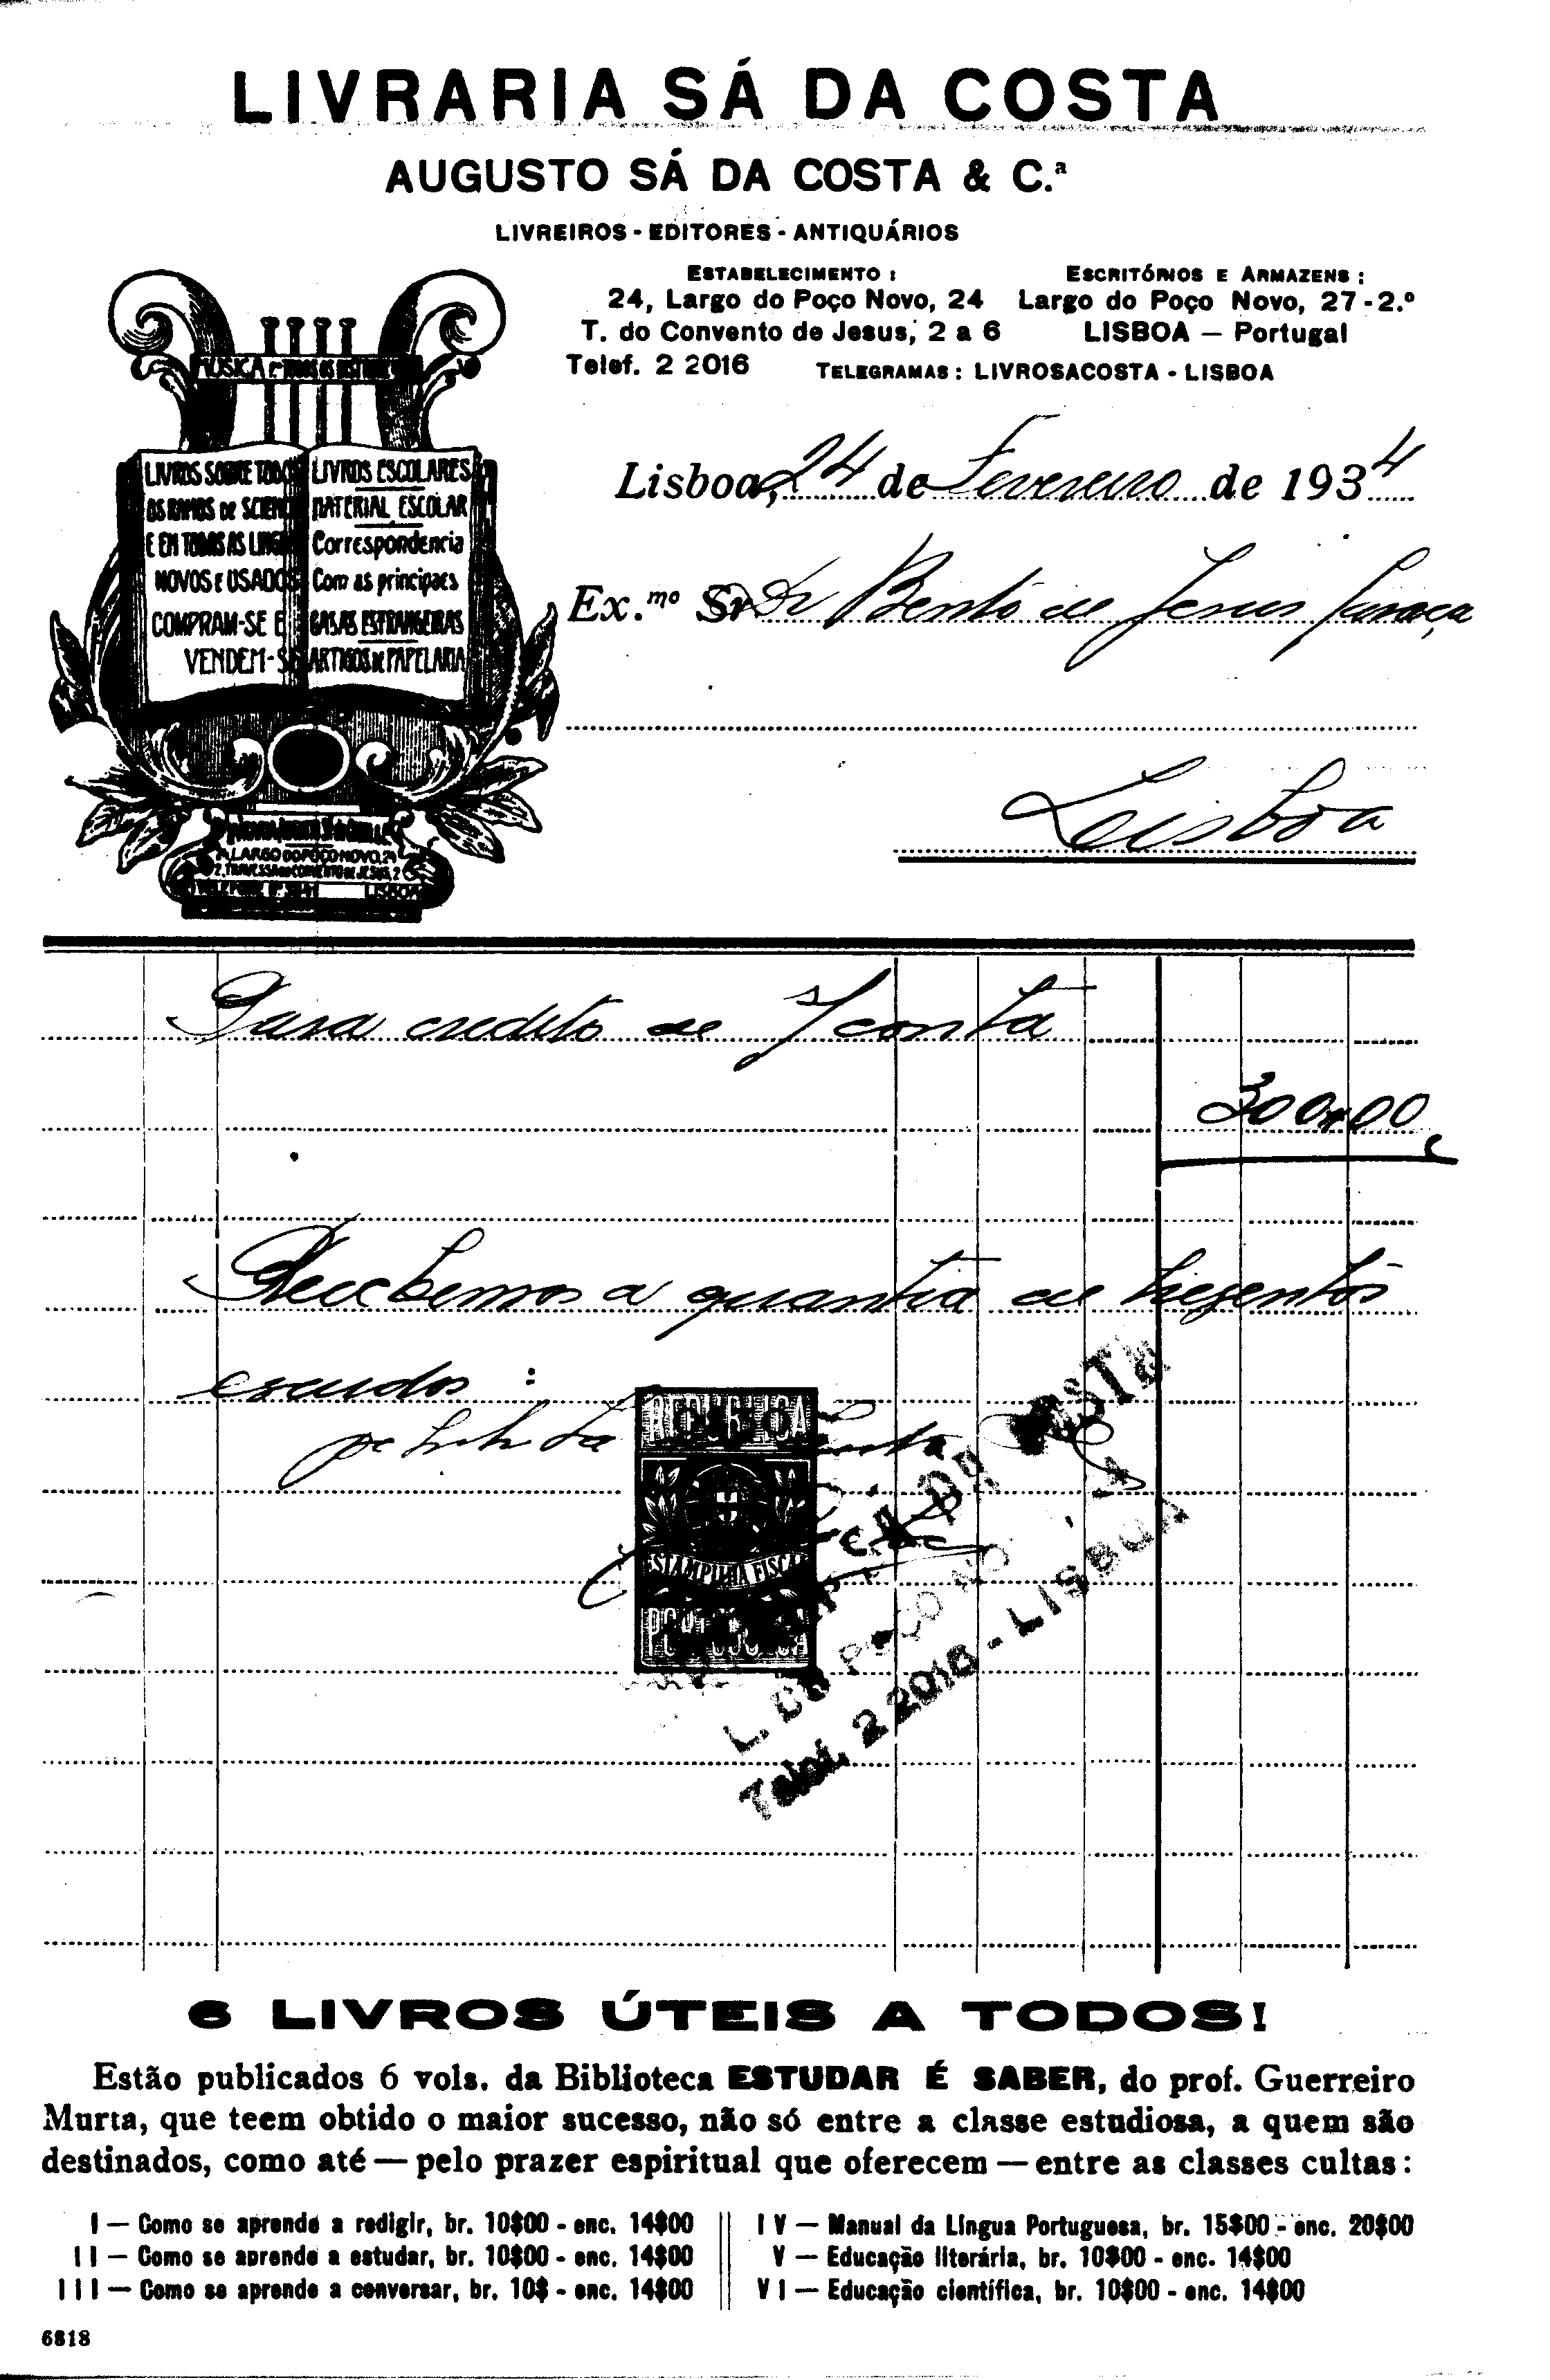 LIVRARIA SÁ DA COSTA
AUGUSTO SÁ DA COSTA & C.ª
LIVREIROS - EDITORES - ANTIQUÁRIOS
ESTABELECIMENTO :
24, Largo do Poço Novo, 24
T. do Convento de Jesus, 2 a 6
Telef. 2 2016
ESCRITÓRIOS E ARMAZENS :
Largo do Poço Novo, 27-2.º
LISBOA — Portugal
TELEGRAMAS : LIVROSACOSTA - LISBOA
MUSICA
LIVROS SOBRE TODOS
OS RAMOS DE SCIEN
E EM TODAS AS LING
NOVOS E USADOS
COMPRAM-SE E
VENDEM-SE
LIVROS ESCOLARES
MATERIAL ESCOLAR
Correspondencia
Com as principaes
CASAS ESTRANGEIRAS
ARTIGOS DE PAPELARIA
LARGO DO POÇO NOVO, 24
LISBOA
Lisboa, 24 de Fevereiro de 1934
Ex.mo Sr Dr Bento de Jesus Caraça
Lisboa
Para credito de s/ conta
300$00
Recebemos a quantia de trezentos
escudos :
REPUBLICA
ESTAMPILHA FISCAL
PORTUGUESA
DA COSTA
L. DO POÇO NO
Telef. 2 2016 - LISBOA
6 LIVROS ÚTEIS A TODOS!
Estão publicados 6 vols. da Biblioteca ESTUDAR É SABER, do prof. Guerreiro
Murta, que teem obtido o maior sucesso, não só entre a classe estudiosa, a quem são
destinados, como até — pelo prazer espiritual que oferecem — entre as classes cultas :
I — Como se aprende a redigir, br. 10$00 - enc. 14$00
II — Como se aprende a estudar, br. 10$00 - enc. 14$00
III — Como se aprende a conversar, br. 10$ - enc. 14$00
IV — Manual da Língua Portuguesa, br. 15$00 - enc. 20$00
V — Educação literária, br. 10$00 - enc. 14$00
VI — Educação científica, br. 10$00 - enc. 14$00
6818